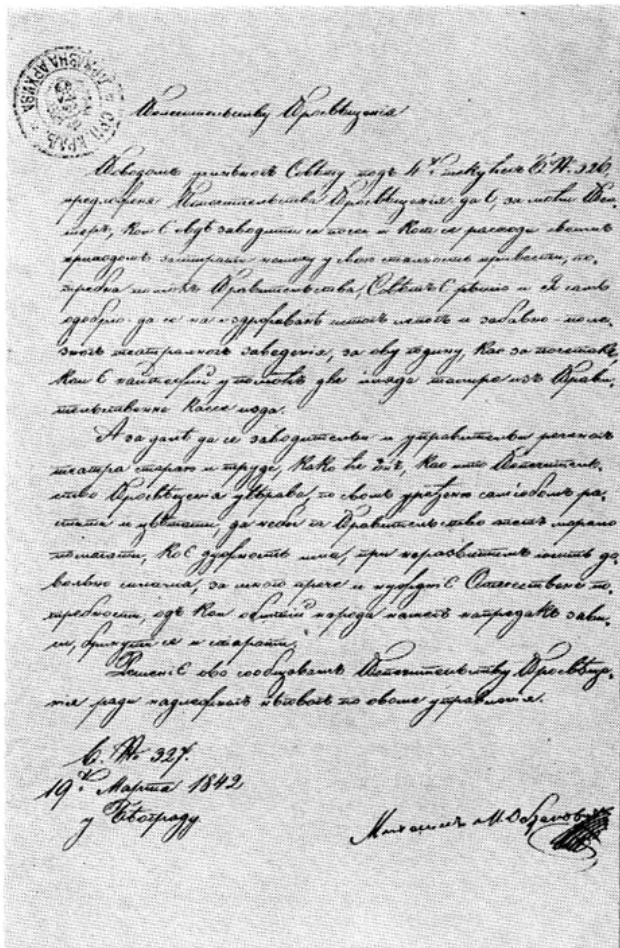 СРП. КРАЉ. ДРЖАВНА АРХИВА
Попечительству Просвѣщенія
Поводомъ учинѣногъ Совѣту подъ 4. текућегъ П. № 326
предложеня Попечительства Просвѣщенія да є, за нови Теа-
теръ, кои є овдѣ заводити се почео и кога се расходи своимъ
приходомъ у свою сталность привести, по-
требна помоћь Правительства, Совѣтъ є рѣшіо и я самъ
одобріо да се на поддржаванѣ истогъ лепогъ и забавно-поле-
зногъ театралногъ заведенія, за ову годину, као за початакъ,
кои є найтежій у помоћь две иляде талира изъ Прави-
тельственне Кассе изда.
А за далѣ да се заводительи и управительи реченогъ
театра стараю и труде, како ће онъ, као што Попечитель-
ство Просвѣщенія уверава, по свомъ уређеню самъ собомъ ра-
стити и цветати, да неби га Правительство опетъ морало
помагати, коє дужность има, при неразвитимъ іоштъ до-
вольно силама, за много прече и нуждніє Отечествене по-
требности, одъ кои общій народа нашегъ напредакъ зави-
си, бринути се и старати.
Решеніє ово сообщавамъ Попечительству Просвѣще-
нія ради надлежногъ нѣговогъ по овоме управленія.
В. № 327.
19. Марта 1842
у Београду
Михаилъ М. Обреновићъ